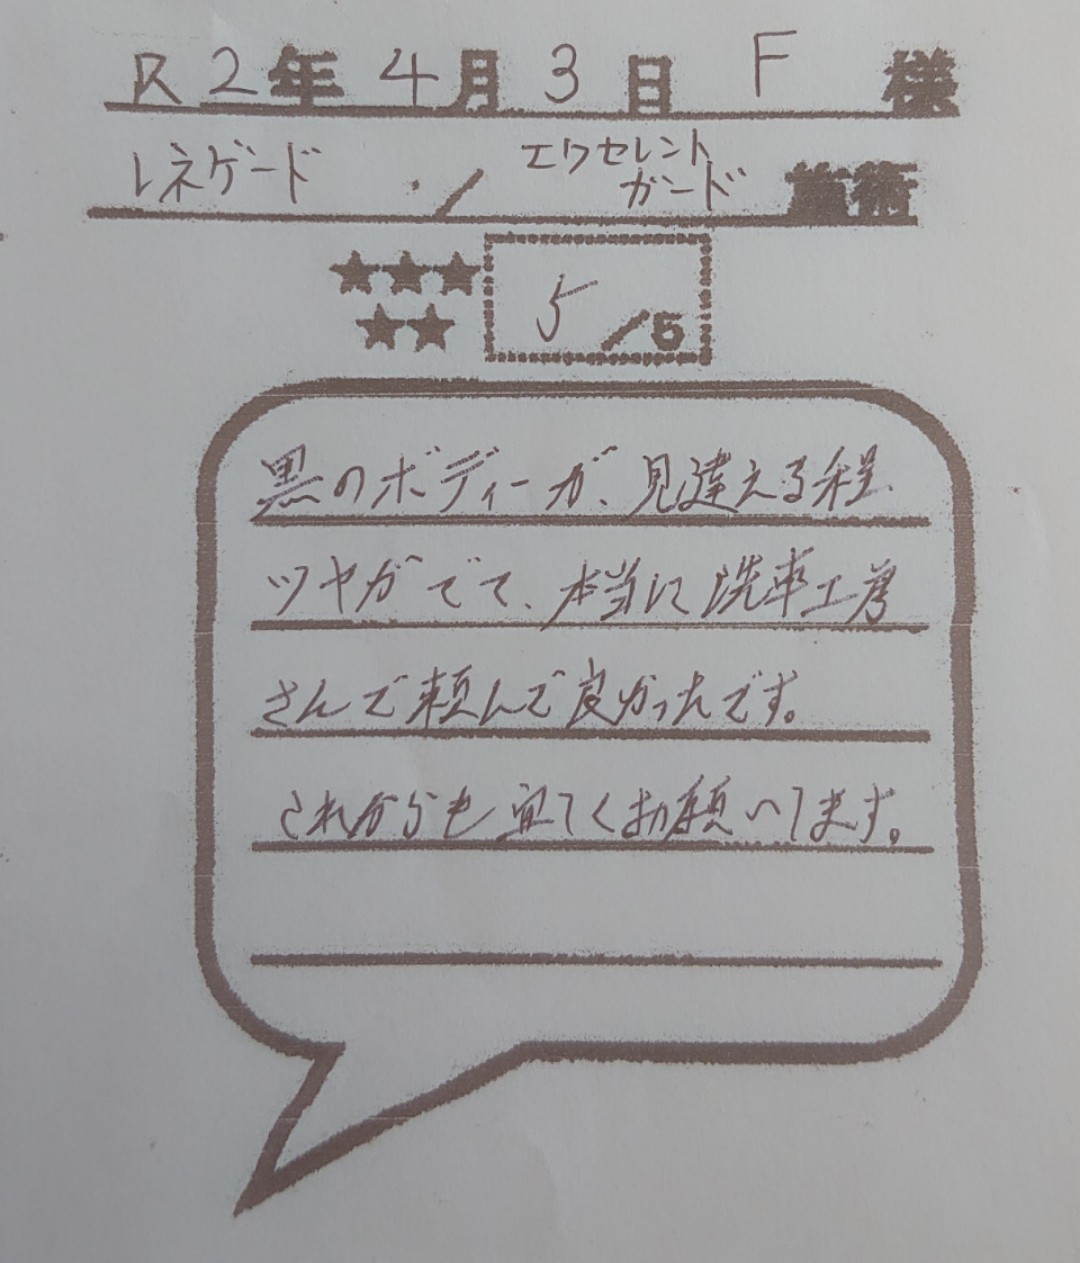 R2年 4月 3日 F 様
レネゲード / エクセレントガード 施術
★★★★★ 5/5
黒のボディーが、見違える程
ツヤがでて、本当に洗車工房
さんで頼んで良かったです。
これからも宜しくお願いします。